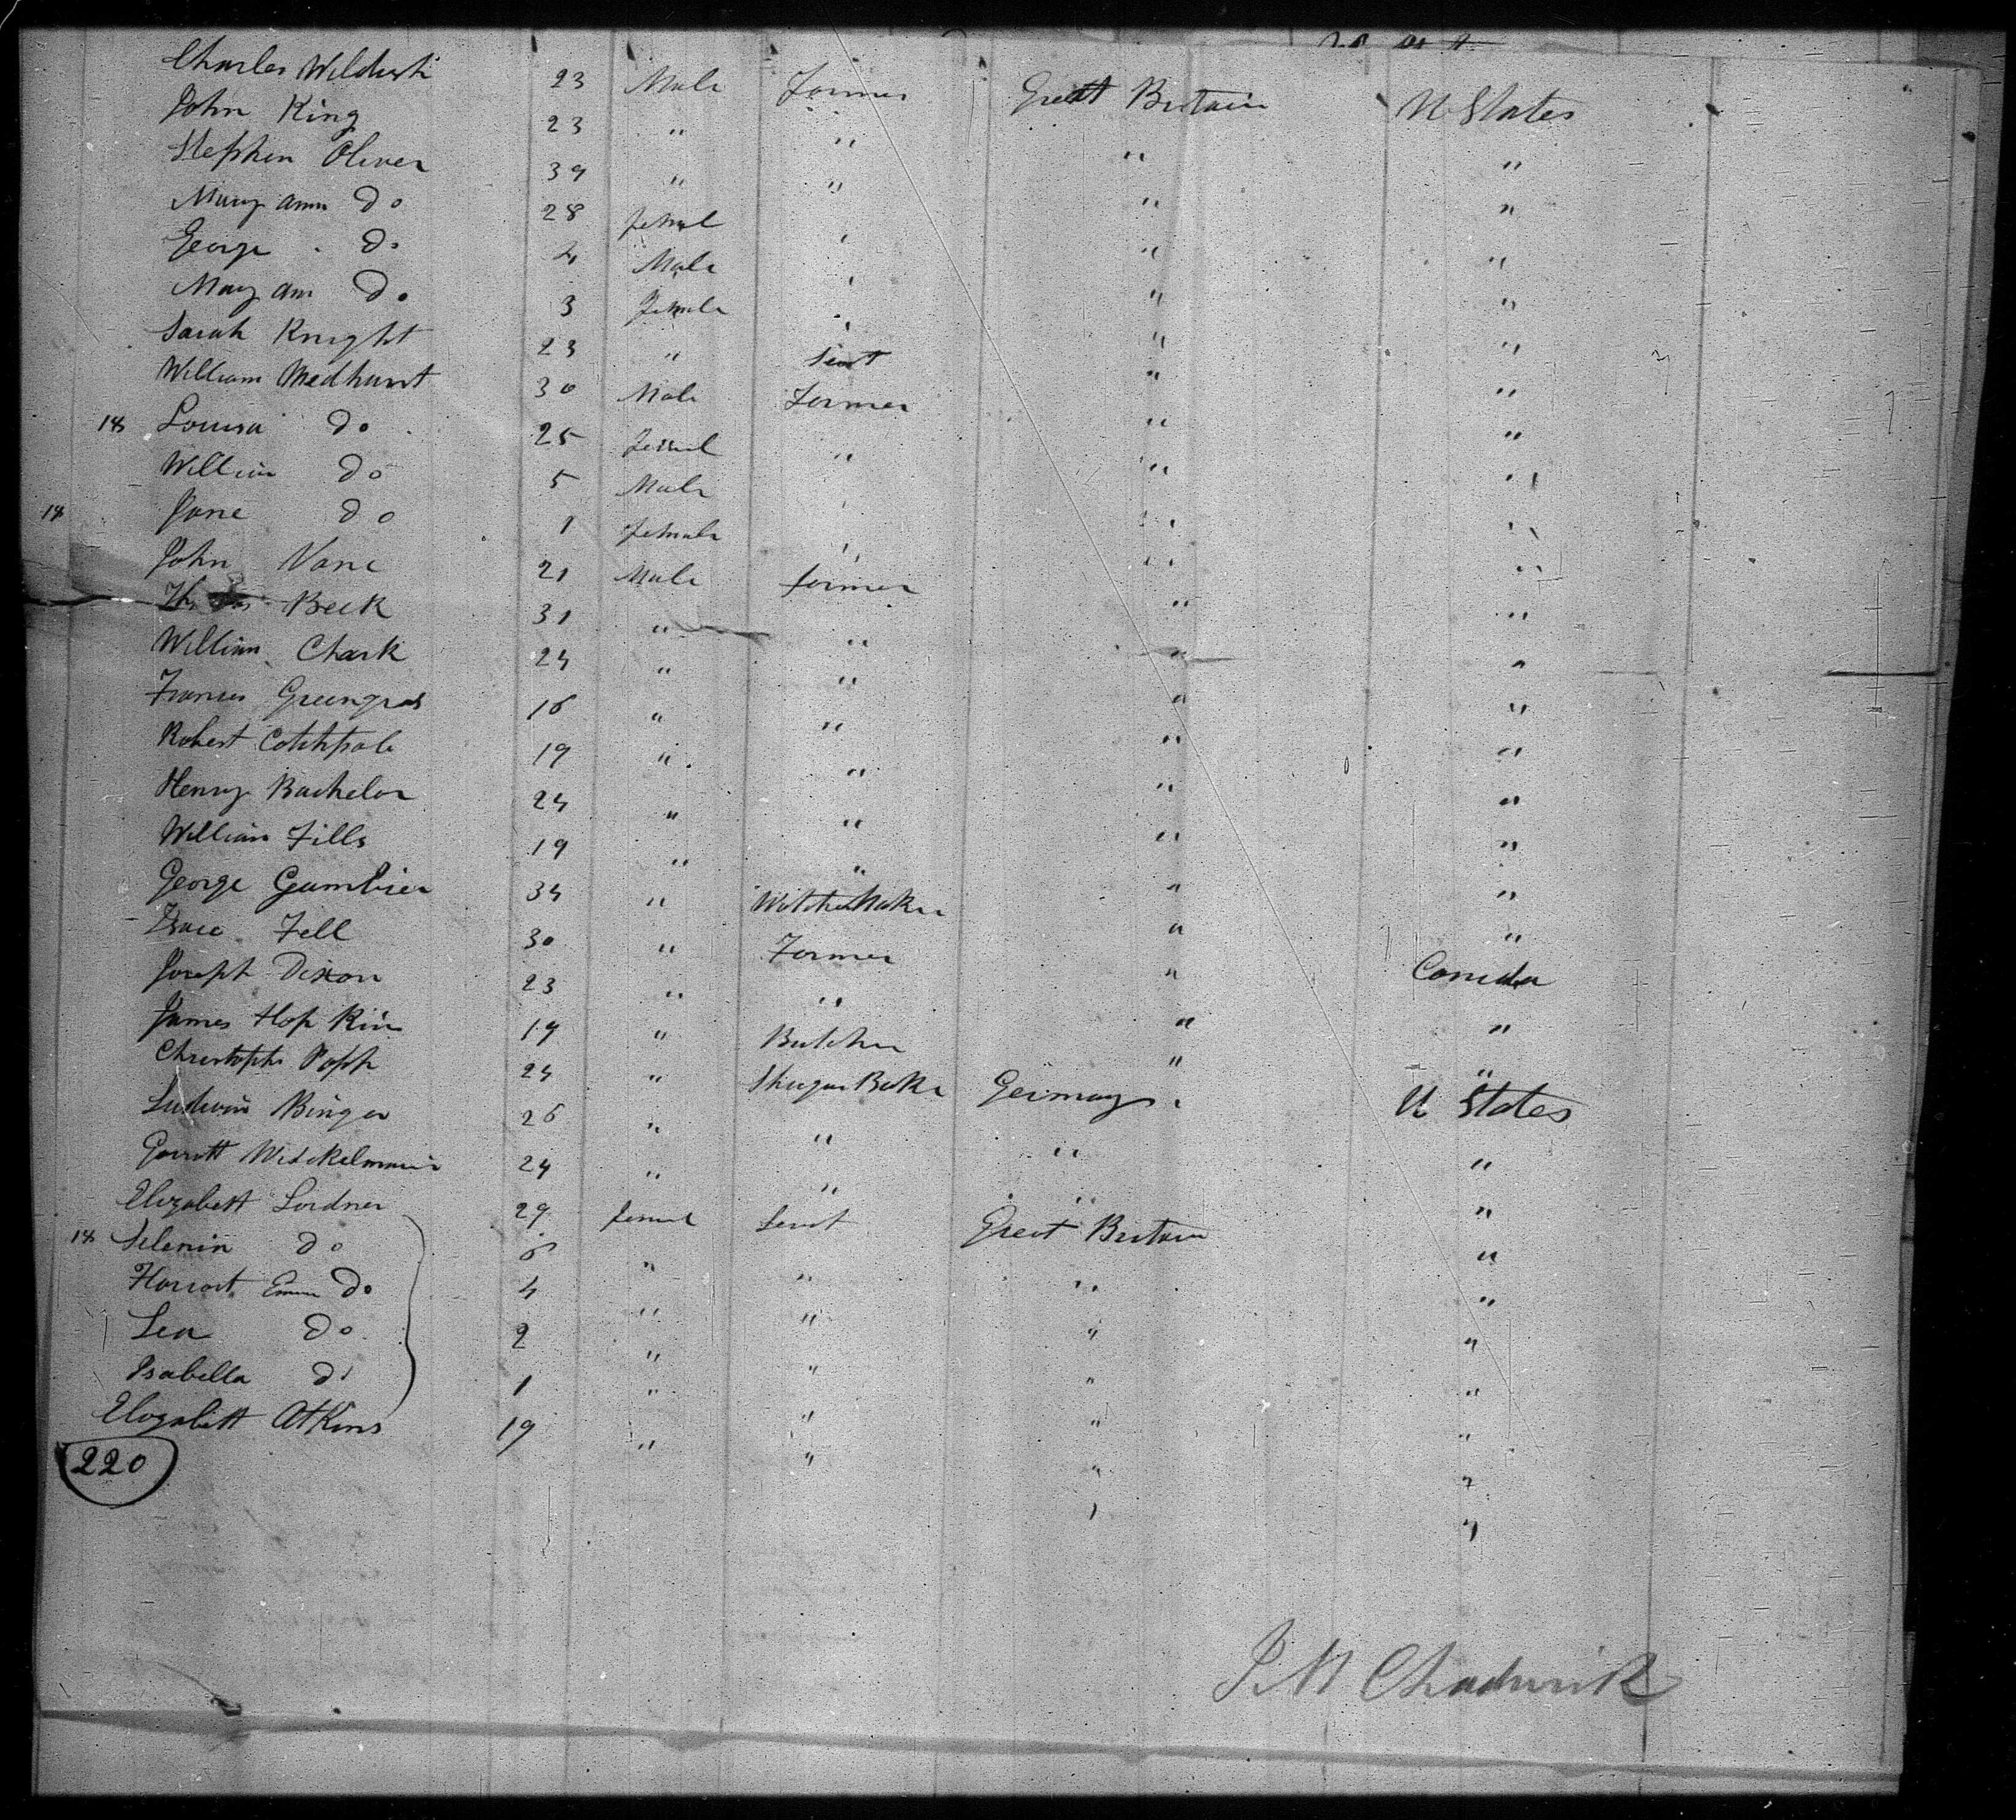 Charles Wildish 23 Male Farmer Great Britain U States
John King 23 " " " "
Stephen Oliver 39 " " " "
Mary ann Do 28 femal " " "
George Do 4 Male " " "
Mary ann Do 3 female " " "
Sarah Knight 23 " Servt " "
William Medhurst 30 Male Farmer " "
18 Louisa Do 25 femal " " "
William Do 5 Male " " "
18 Jane Do 1 female " " "
John Vane 21 Male farmer " "
Beck 31 " " " "
William Chark 24 " " " "
Frances Greengras 16 " " " "
Robert 19 " " " "
Henry Bachelor 24 " " " "
William Fills 19 " " " "
George Gambier 34 " Watch Maker " "
Isaac Fell 30 " Farmer " Canada
Joseph Dixon 23 " " " "
James Hopkins 19 " Butcher " "
Christoph Popp 24 " Shugar Baker Germany U States
Ludwin Binger 26 " " " "
Garrott 24 " " " "
Elizabett Lordner 29 femal Servt Great Britain "
18 Selenia Do 6 " " " "
Harriot Emma Do 4 " " " "
Lea Do 2 " " " "
Isabella Do 1 " " " "
Elizabett Atkins 19 " " " "
220
J M Chadwick